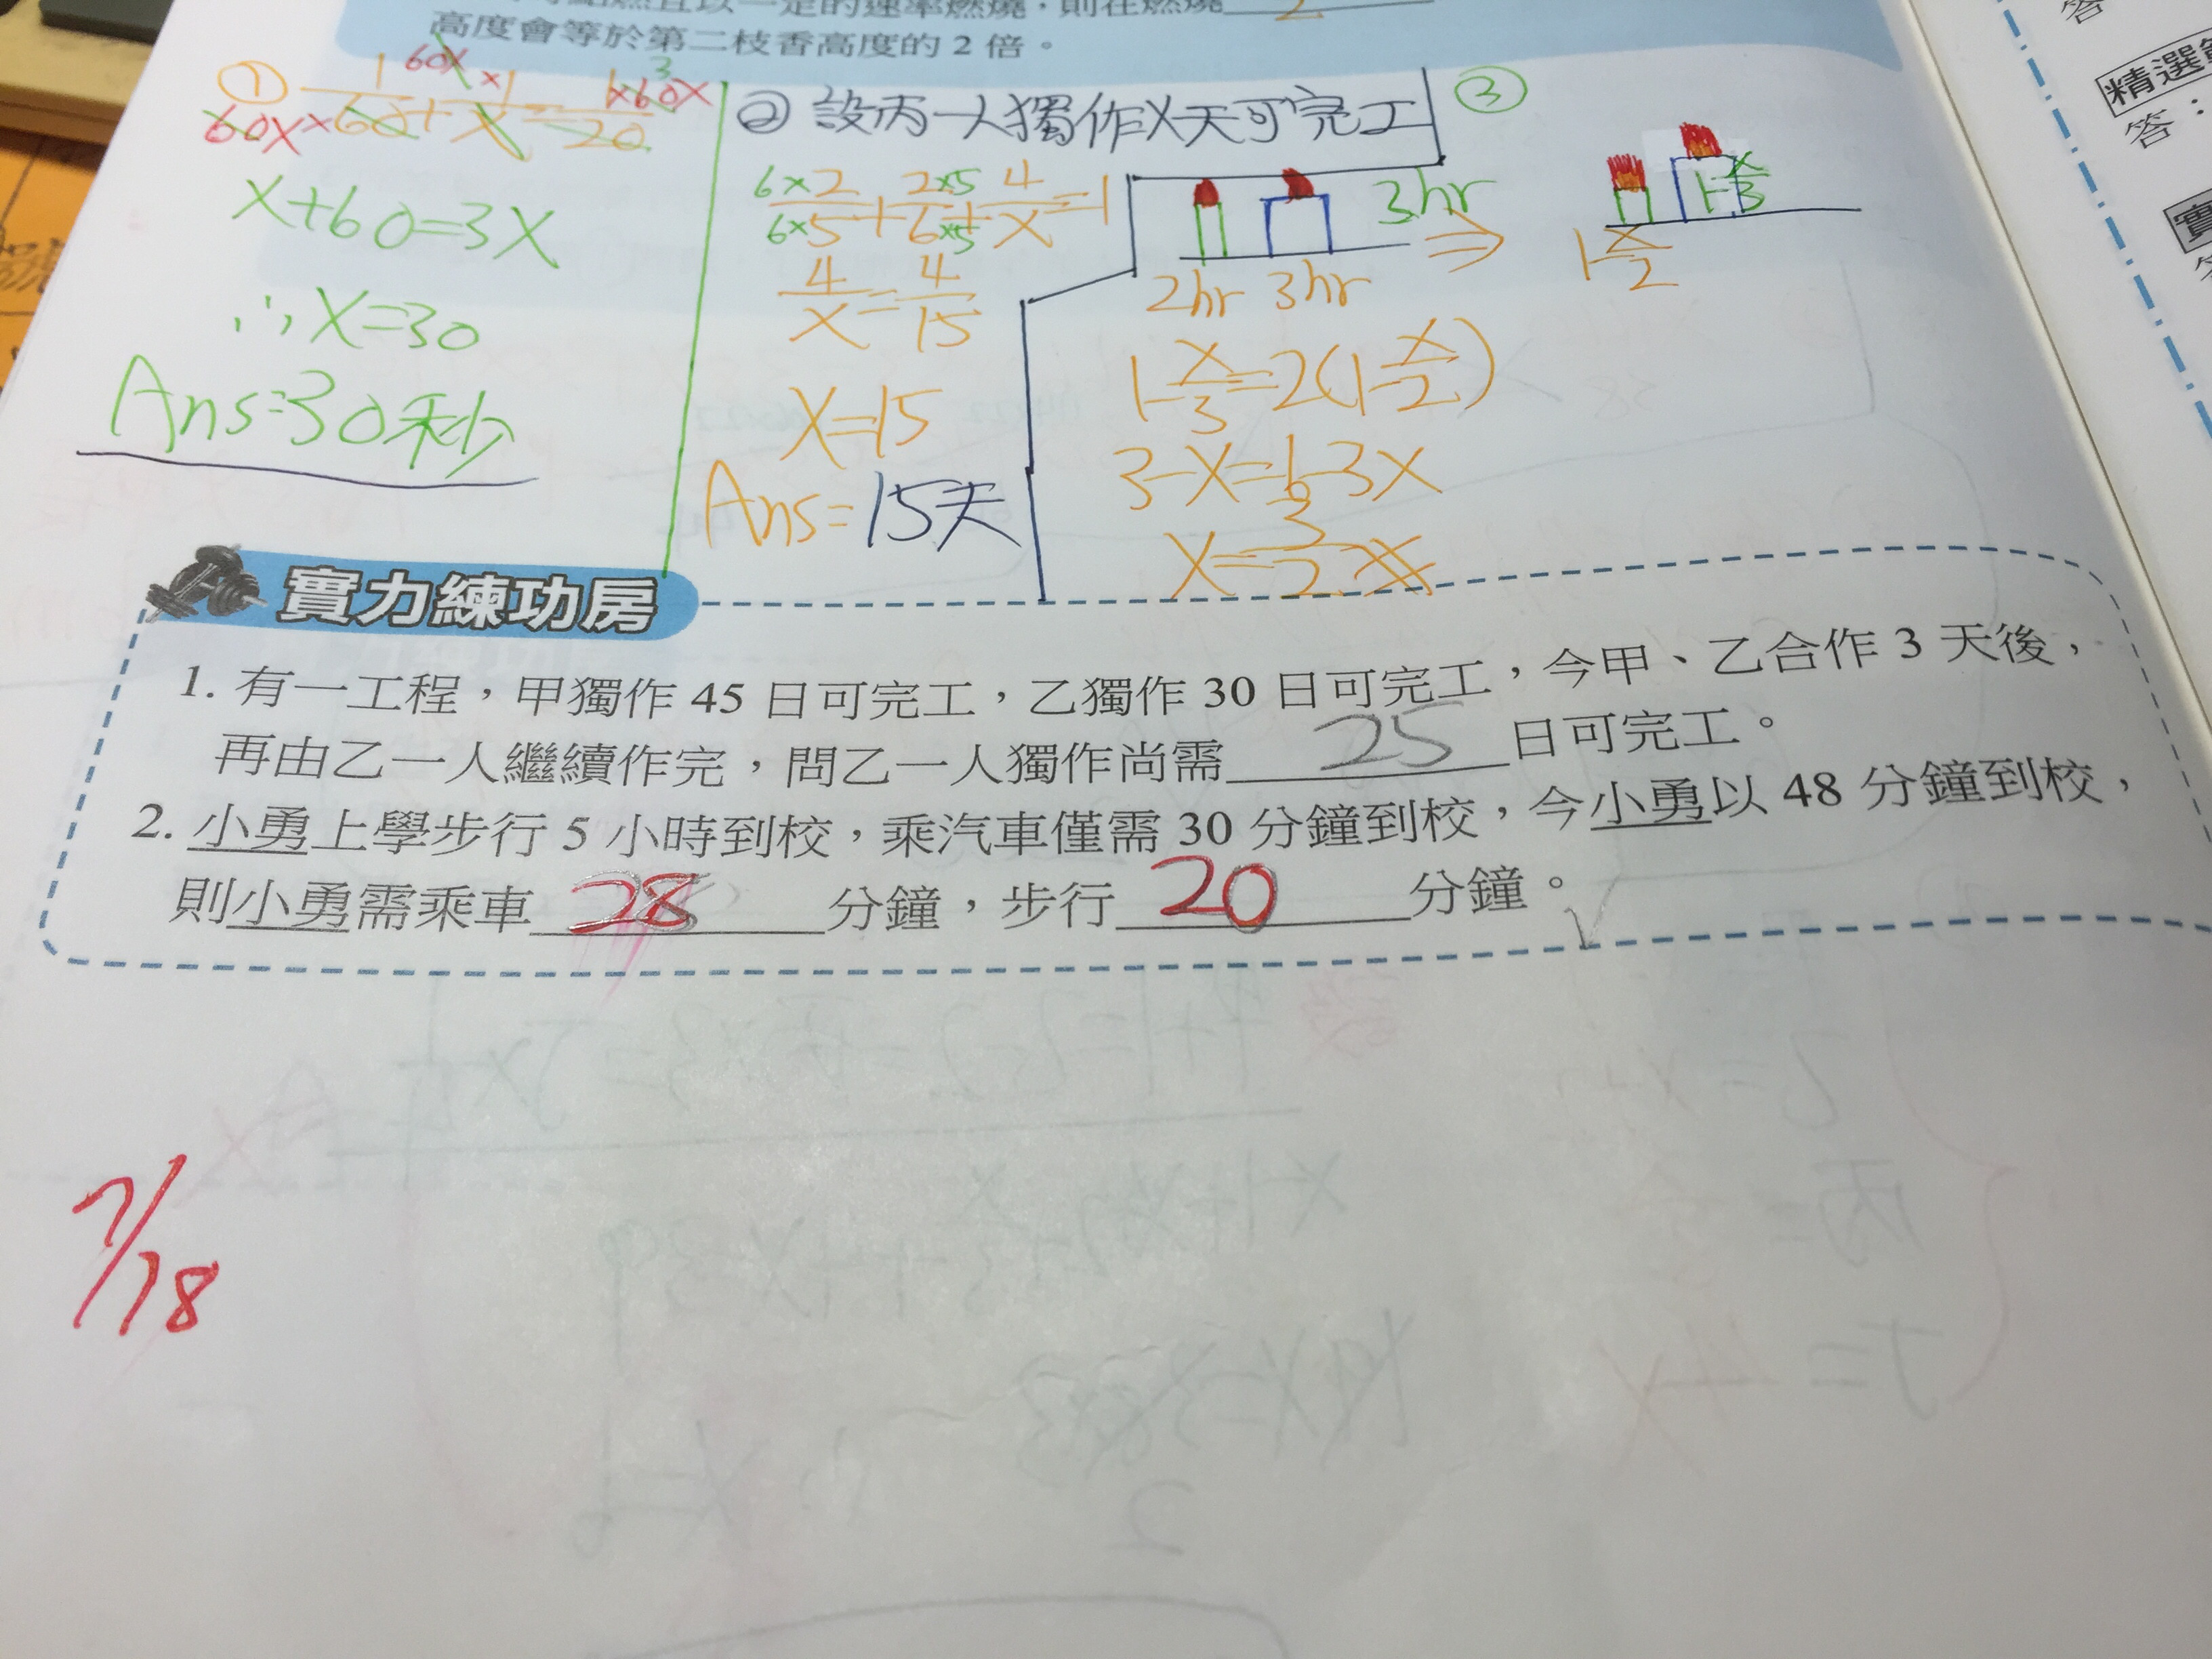 高度會等於第二枝香高度的 2 倍。
①
x+60=3x
∴x=30
Ans=30秒
② 設丙一人獨作x天可完工
6×2/6×5+2×5/6×5+4/x=1
4/x=4/15
x=15
Ans=15天
③
3hr
2hr 3hr
⇒
1-x/2
1-x/3
1-x/3=2(1-x/2)
實力練功房
1. 有一工程，甲獨作 45 日可完工，乙獨作 30 日可完工，今甲、乙合作 3 天後，
再由乙一人繼續作完，問乙一人獨作尚需 25 日可完工。
2. 小勇上學步行 5 小時到校，乘汽車僅需 30 分鐘到校，今小勇以 48 分鐘到校，
則小勇需乘車 28 分鐘，步行 20 分鐘。
7/18
精選
答：